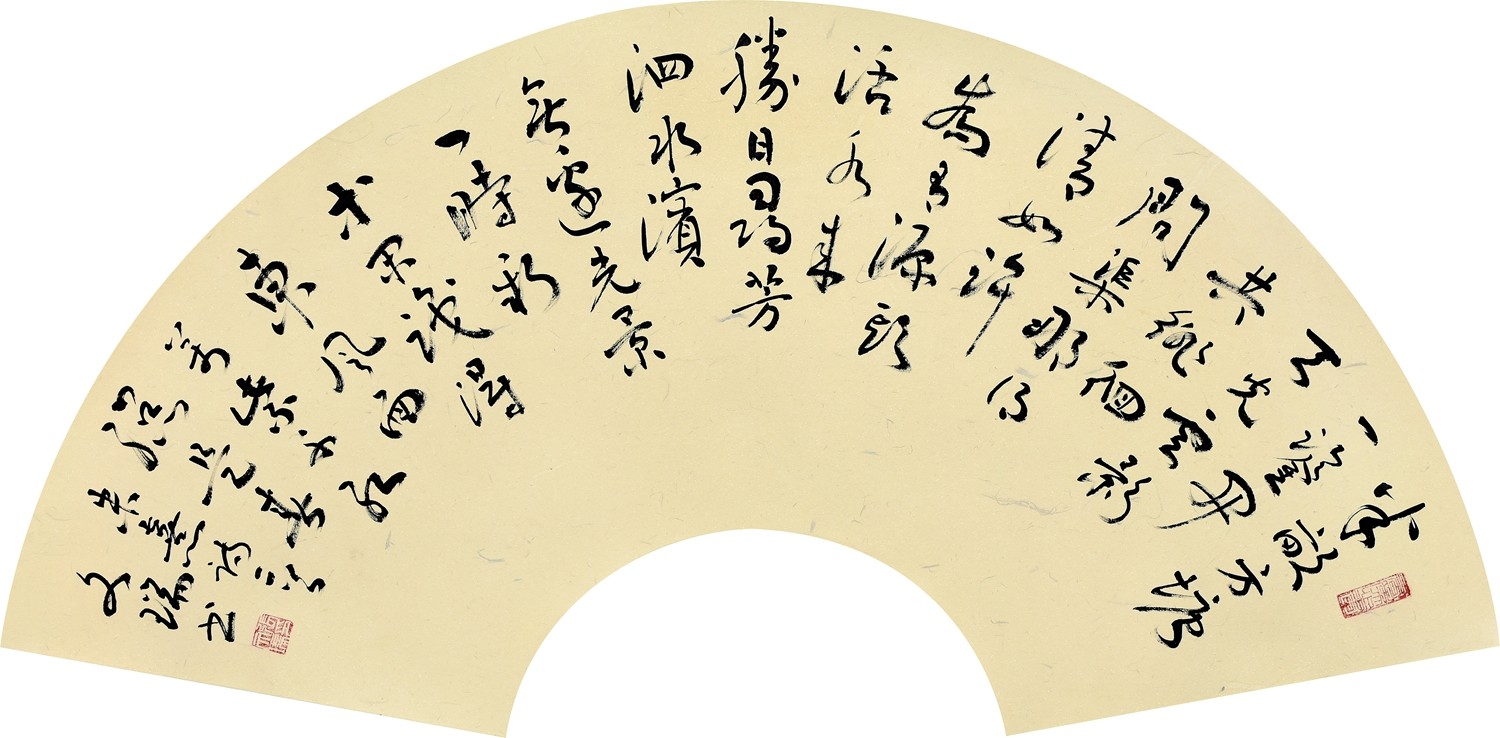 半畝方塘
一鑑開
天光雲影
共徘徊
問渠那得
清如許
為有源頭
活水來
勝日尋芳
泗水濱
無邊光景
一時新
等閒識得
東風面
萬紫千紅
總是春
朱熹詩二首
文瑞書